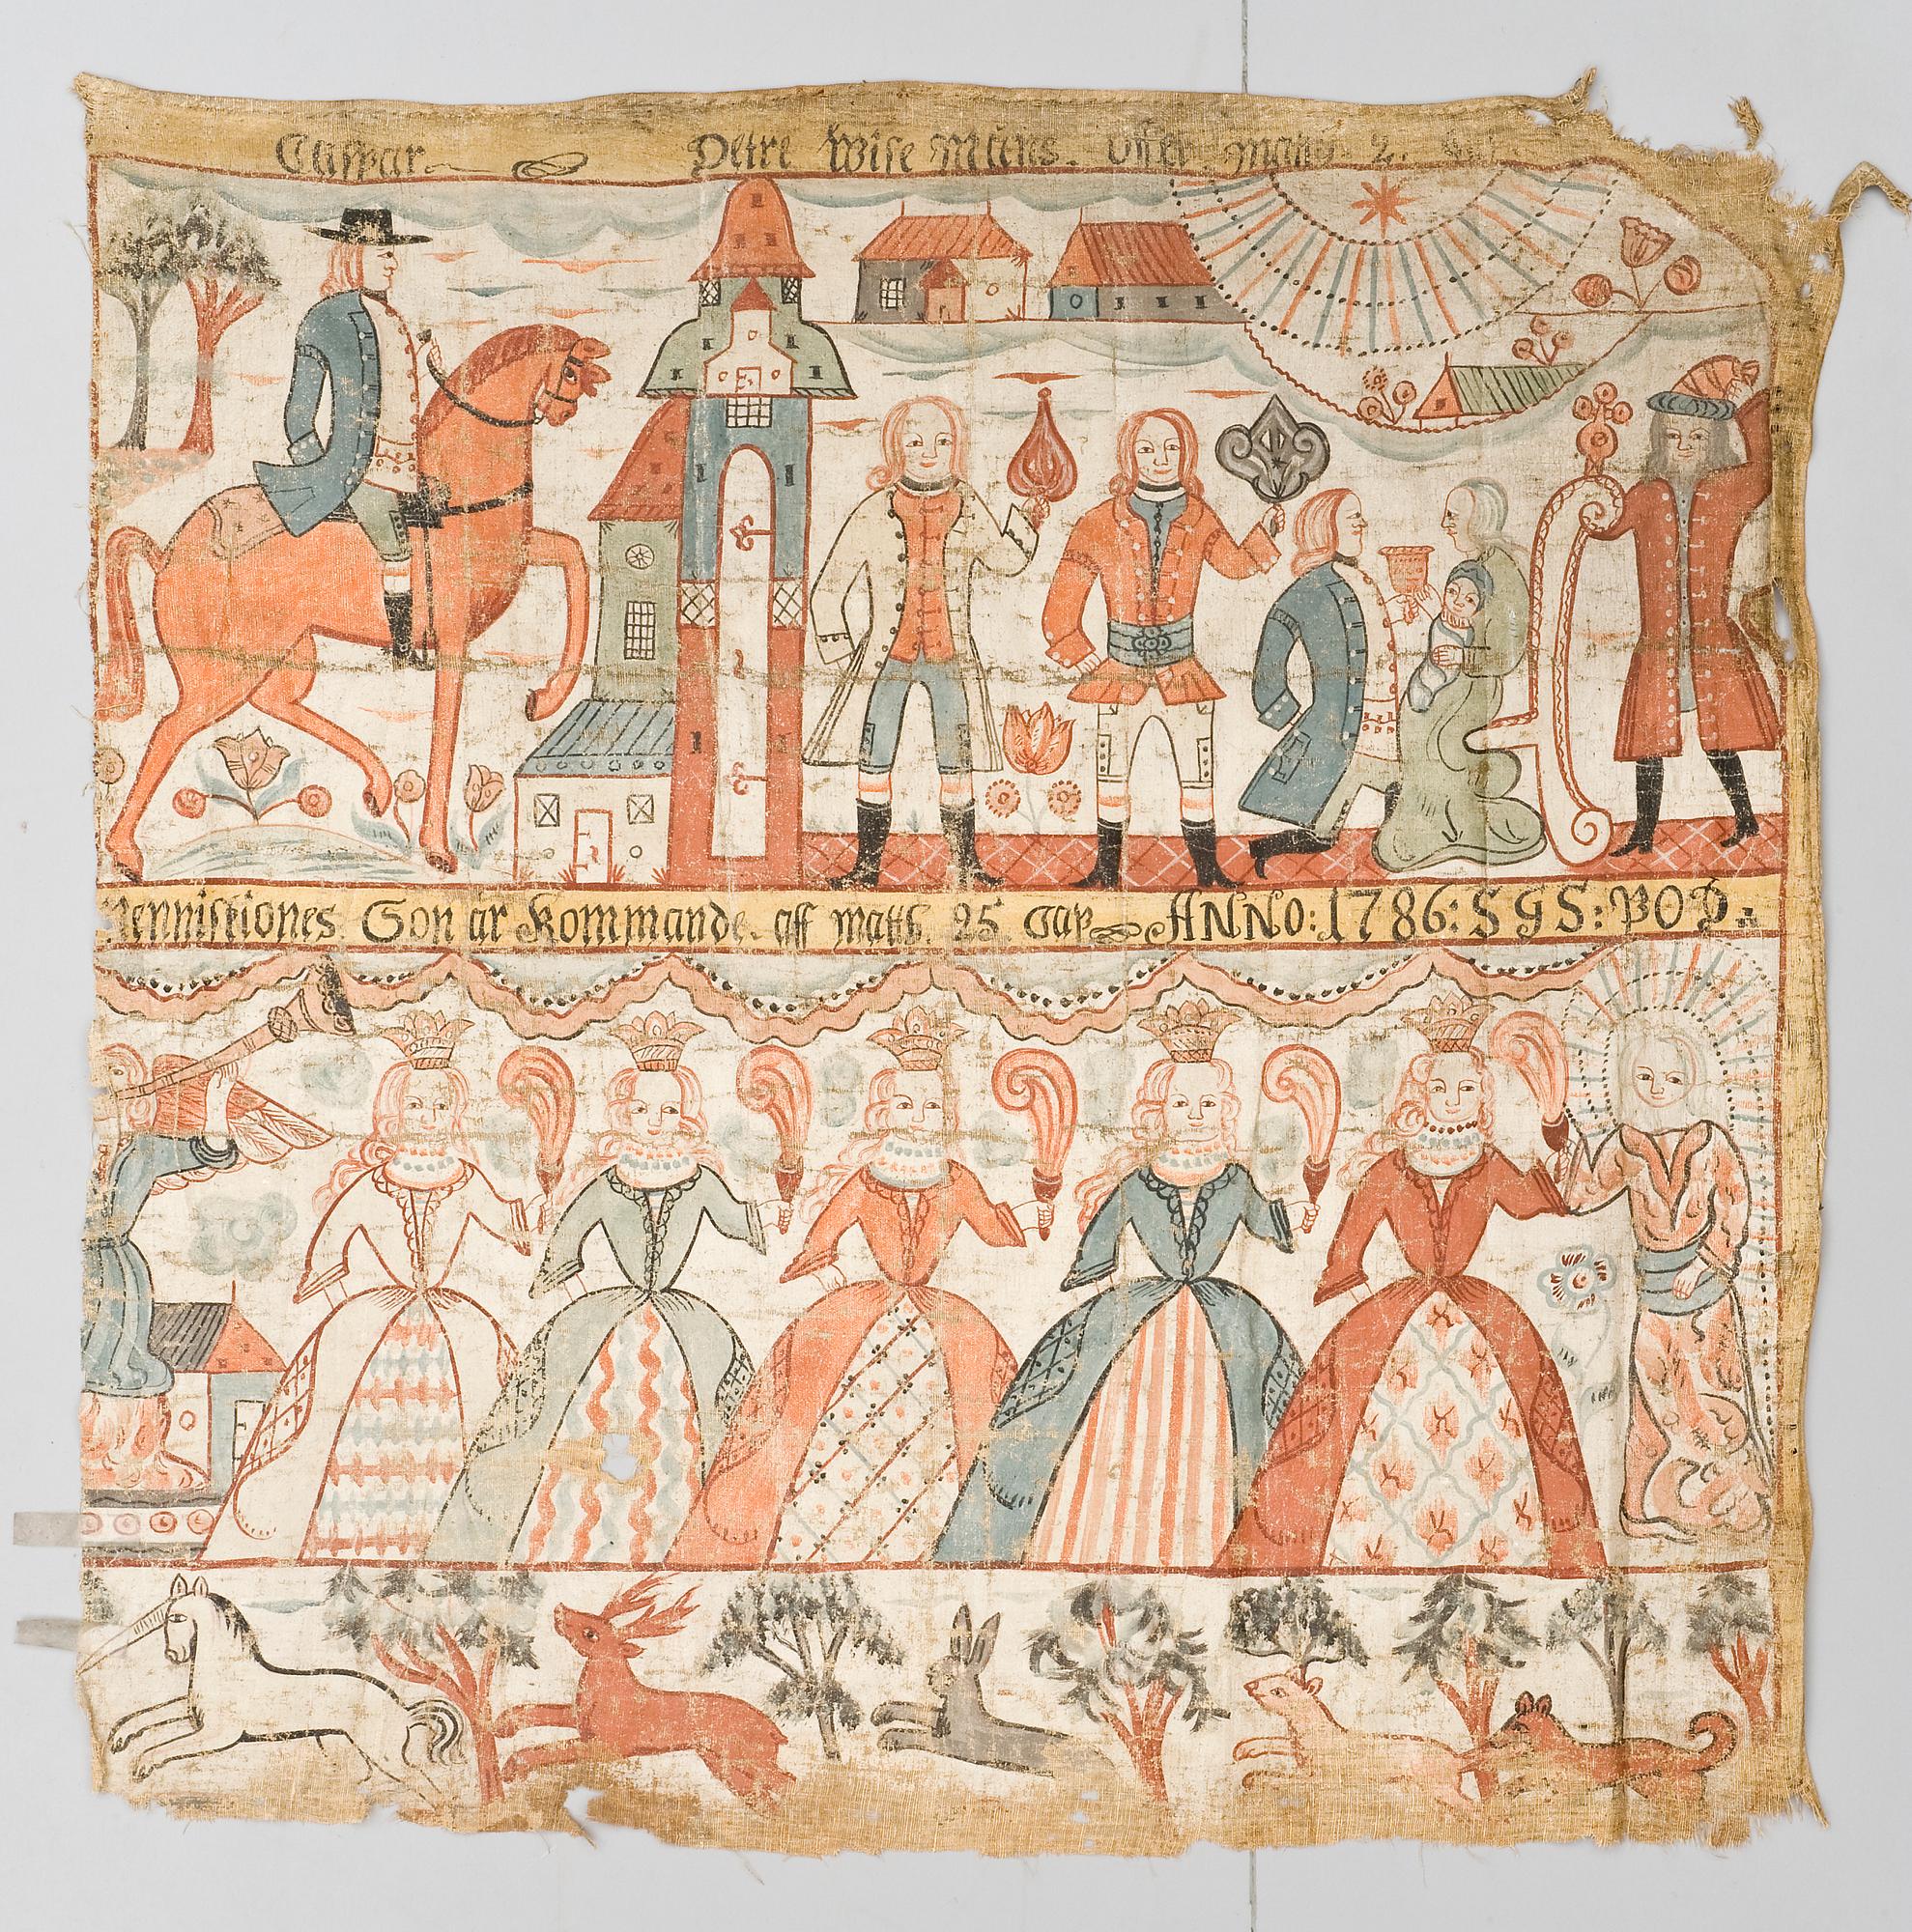 Caspar
Wise Mäns. offer. Matth 2.
Menniskiones Son är Kommande. aff Matth. 25 Cap ANNO: 1786: S G S: POP